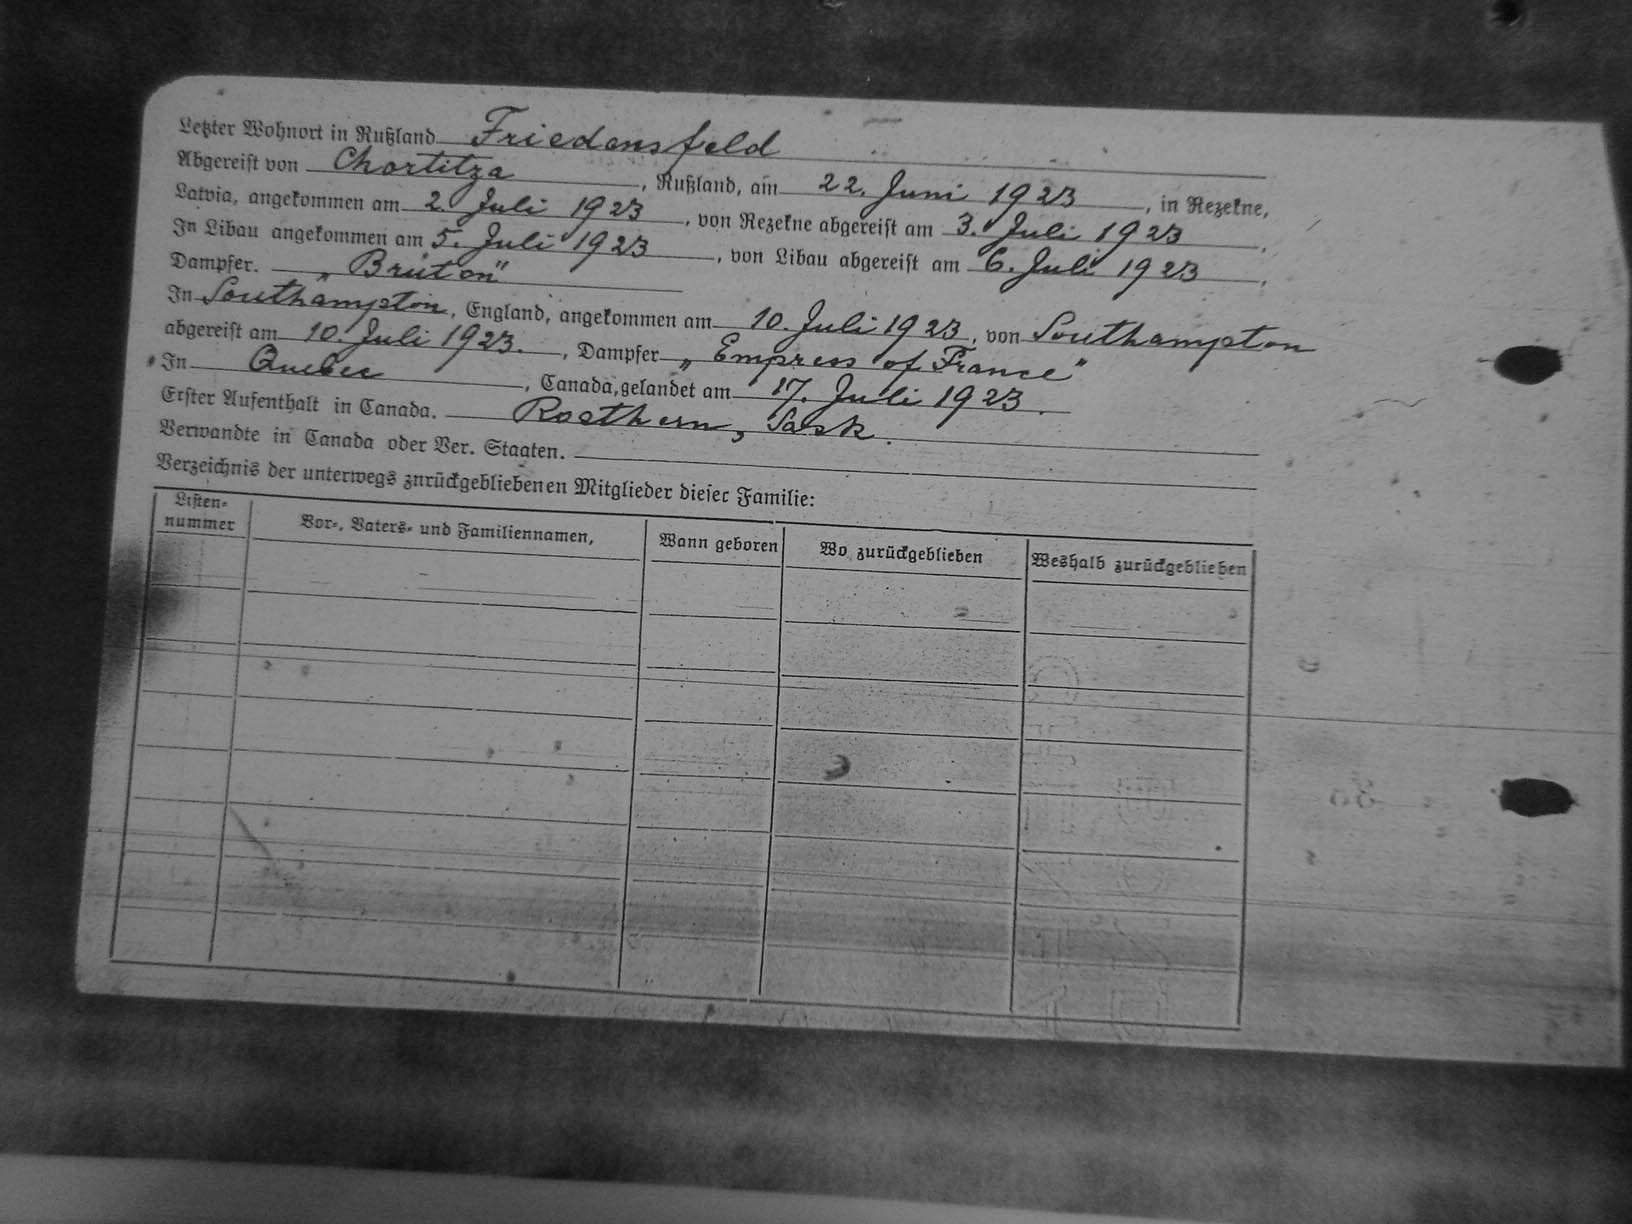 Letzter Wohnort in Rußland Friedensfeld
Abgereist von Chortitza, Rußland, am 22. Juni 1923, in Rezekne,
Latvia, angekommen am 2. Juli 1923, von Rezekne abgereist am 3. Juli 1923,
In Libau angekommen am 5. Juli 1923, von Libau abgereist am 6. Juli 1923,
Dampfer. „Bruton"
In Southampton, England, angekommen am 10. Juli 1923, von Southampton
abgereist am 10. Juli 1923., Dampfer „Empress of France"
In Quebec, Canada, gelandet am 17. Juli 1923.
Erster Aufenthalt in Canada. Rosthern, Sask.
Verwandte in Canada oder Ver. Staaten.
Verzeichnis der unterwegs znrückgebliebenen Mitglieder dieser Familie:
Listen-
nummer
Vor-, Vaters- und Familiennamen,
Wann geboren
Wo zurückgeblieben
Weshalb zurückgeblieben